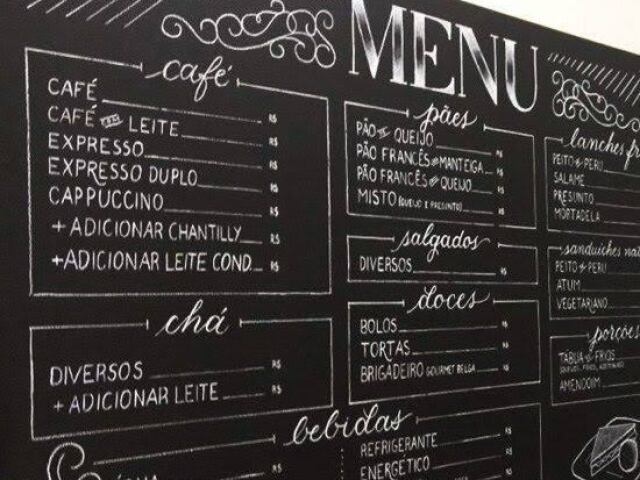 MENU
café
CAFÉ R$
CAFÉ com LEITE R$
EXPRESSO R$
EXPRESSO DUPLO R$
CAPPUCCINO R$
+ ADICIONAR CHANTILLY R$
+ ADICIONAR LEITE COND. R$
chá
DIVERSOS R$
+ ADICIONAR LEITE R$
pães
PÃO de QUEIJO R$
PÃO FRANCÊS com MANTEIGA R$
PÃO FRANCÊS com QUEIJO R$
MISTO (QUEIJO E PRESUNTO) R$
salgados
DIVERSOS R$
doces
BOLOS R$
TORTAS R$
BRIGADEIRO GOURMET BELGA R$
bebidas
R$
REFRIGERANTE R$
ENERGÉTICO R$
lanches
PEITO de PERU
SALAME
PRESUNTO
MORTADELA
sanduiches
PEITO de PERU
ATUM
VEGETARIANO
porções
TÁBUA de FRIOS
AMENDOIM